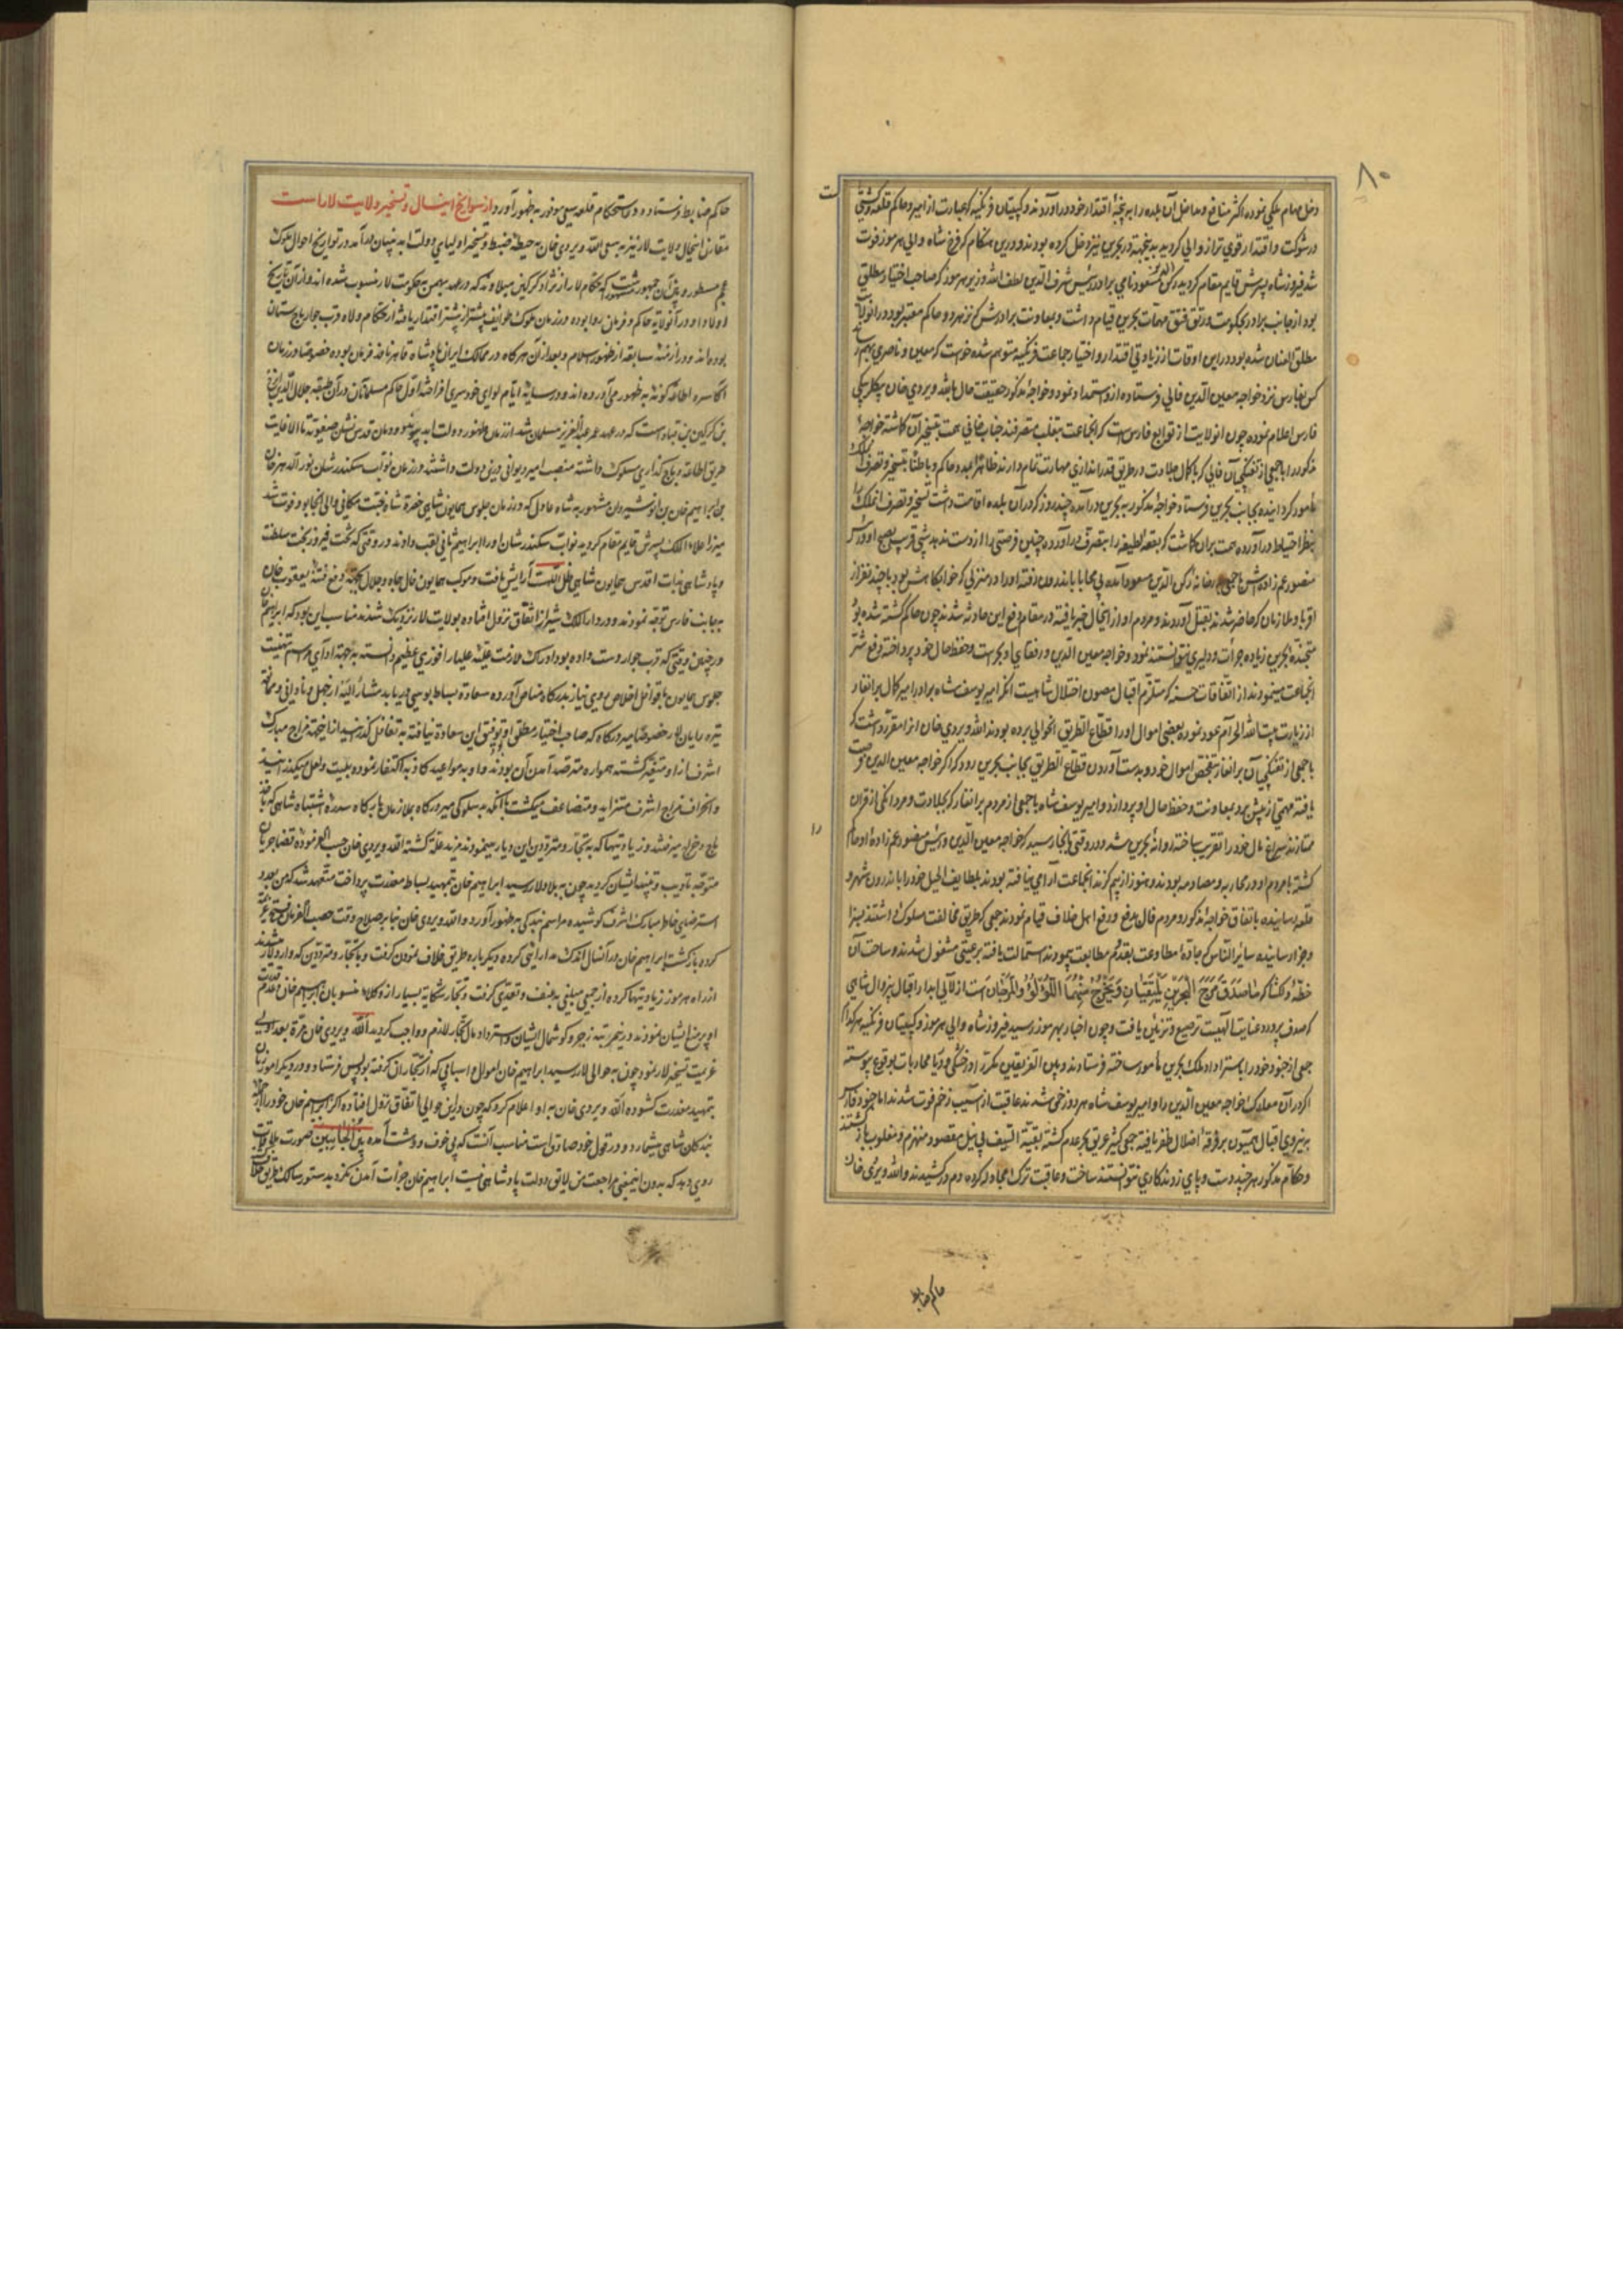 ۸۰
دخل مهام ملکی نموده اکثر منافع و مداخل آن بلده را به پنجهٔ اقتدار خود درآوردند و کپیتان فرنگیه که عبارت از امیر و حاکم قلعه و کشتی
در شوکت و اقتدار قوی‌تر از والی گردید بدین جهة در بحرین نیز دخل کرده بودند و درین هنگام که فرخ شاه والی هرموز فوت
شد فیروزشاه پسرش قایم مقام گردید رکن الدین مسعود نامی برادر رئیس شرف الدین لطف الله وزیر هرموز که صاحب اختیار مطلق
بود از جانب برادر بحکومت و رتق و فتق مهمات بحرین قیام داشت و بمعاونت برادرش که نزد هر دو حاکم معتبر بود در انولا
مطلق العنان شده بود درین اوقات از زیادتی اقتدار و اختیار جماعت فرنگیه متوهم شده خواست که معین و ناصری بهم رساند
کس بفارس نزد خواجه معین الدین فالی فرستاده ازو استمداد نمود و خواجهٔ مذکور حقیقت حال بالله ویردی خان بیگلربیگی
فارس اعلام نموده چون انولایت از توابع فارس است که انجماعت بتغلب متصرفند جناب خانی همت بتسخیر آن گماشته خواجهٔ
مذکور را با جمعی از تفنگچیان فالی که با کمال جلادت در طریق قدراندازی مهارت تمام دارند ظاهراً بمدد حاکم و باطناً بتسخیر و تصرف آن ملک
مأمور گردانیده بجانب بحرین فرستاد و خواجهٔ مذکور به بحرین درآمده چند روز که در آن بلده اقامت داشت تسخیر و تصرف انملک را
بنظر احتیاط درآورده همت بران گماشت که بقعهٔ لطیفه را بتصرف درآورده چنین فرصتی را از دست ندهد شبی قریب بصبح او و رئیس
منصور عم زاده‌اش با جمعی بخانهٔ رکن الدین مسعود آمده بی محابا باندرون رفته او را در منزلی که خوابگاهش بود با چند نفر از
اقربا و ملازمان که حاضر شدند بقتل آوردند و مردم او از انحال خبر یافته در مقام دفع این حادثه شدند چون حاکم کشته شده بود
متجندهٔ بحرین زیاده جرأت و دلیری نتوانستند نمود و خواجه معین الدین و رفقای او بحراست و حفظ حال خود پرداخته دفع شر
انجماعت مینمودند از اتفاقات حسنه که مستلزم اقبال مصون اختلال شاهیست انکه امیر یوسف شاه برادر امیر کمال برانغار
از زیارت بیت الله الحرام عود نموده بعضی اموال او را قطاع الطریق انحوالی برده بودند الله ویردی خان او را مقرر داشت که
با جمعی از تفنگچیان برانغار بتفحص اموال خود و بدست آوردن قطاع الطریق بجانب بحرین رود که اگر خواجه معین الدین فرصت
یافته مهمتی از پیش برد بمعاونت و حفظ حال او پردازد و امیر یوسف شاه با جمعی از مردم برانغار که بجلادت و مردانگی از اقران
ممتازند سراغ مال خود را تقریب ساخته روانهٔ بحرین شد و در وقتی بانجا رسید که خواجه معین الدین و رئیس منصور عم زادهٔ او حاکم را
کشته با مردم او در محاربه و مصادمه بودند و هنوز از بیم گزند انجماعت آرامی نیافته بودند بلطایف الحیل خود را باندرون شهر و
قلعه رسانیده باتفاق خواجهٔ مذکور و مردم فال بدفع و رفع اهل خلاف قیام نمودند جمعی که طریق مخالفت مسلوک داشتند بسزا
و جزا رسانیده سائر الناس که جادهٔ مطاوعت بقدم مطابعت پیمودند استمالت یافته برعیتی مشغول شدند و ساحت آن
خطهٔ دلکشا که مصداق مرج البحرین یلتقیان و یخرج منهما اللؤلؤ و المرجان است از لآلی آبدار اقبال بیزوال شاهی
که صدف پرورده عنایت الهیست ترصیع و تزئین یافت و چون اخبار بهرموز رسید فیروزشاه والی هرموز و کپیتان فرنگیه هر کدام
جمعی از جنود خود را باسترداد ملک بحرین مأمور ساخته فرستادند و بین الفریقین مکرر در خشکی و دریا محاربات بوقوع پیوسته
اگر در آن معارک خواجه معین الدین و امیر یوسف شاه هر دو زخمی شدند عاقبت از آسیب زخم فوت شدند اما جنود فارس
بنیروی اقبال همیون بر فرقهٔ اضلال ظفر یافته جمعی کثیر غریق بحر عدم گشته بقیة السیف بی نیل مقصود منهزم و مغلوب باز گشتند
و حکام مذکور هر چند دست و پای زدند کاری نتوانستند ساخت و عاقبت ترک مجادله کرده دم درکشیدند و الله ویردی خان
حاکم ضابط
حاکم ضابط فرستاده در استحکام قلعه سعی موفور به ظهور آورد و از سوانح اینسال و تسخیر ولایت لار است
مقارن اینحال ولایت لار نیز به سعی الله ویردی خان به حیطهٔ ضبط و تسخیر اولیای دولت ابد پنیان درآمد در تواریخ احوال ملوک
عجم مسطور و میان جمهور مشهور است که حکام لار از نژاد گرگین میلادند که در عهد بهمن به حکومت لار منسوب شده‌اند و از آن تاریخ
اولاد او در آنولایه حاکم و فرمان‌روا بوده در زمان ملوک طوایف بیشتر از پیشتر اقتدار یافته از حکام و ولاة قرب جوار باج ستان
بوده‌اند و در ازمنهٔ سابقه از ظهور اسلام و بعد از آن هر گاه در ممالک ایران پادشاه قاهر نافذ فرمان بوده خصوصاً در زمان
اکاسره اطاعه گونهٔ به ظهور می‌آورده‌اند و در سایهٔ ایام لوای خودسری افراخته اول حاکم مسلمانان در آن طبقه جلال الدین ایرج
طریق اطاعه و باج گذاری مسلوک داشته منصب امیر دیوانی درین دولت داشتند در زمان نواب سکندر شان نورالدهر خان
بن ابراهیم خان بن انوشیروان مشهور به شاه عادل که در زمان جلوس همایون شاهی حضرة شاه جنت مکانی والی انجا بود فوت شد
میرزا علاء الملک پسرش قایم مقام گردید نواب سکندر شان او را ابراهیم ثانی لقب دادند در وقتی که تخت فیروز بخت سلطنت
و پادشاهی بذات اقدس همایون شاهی ظل اللهی آرایش یافت و موکب همایون فال بجاه و جلال بجهة دفع فتنهٔ یعقوب خان
بجانب فارس توجه نمودند و در دار الملک شیراز اتفاق نزول افتاده بولایت لار نزدیک شدند مناسب این بود که ابراهیم خان
در چنین وقتی که قرب جوار دست داده بود ادراک ملازمت علیه علیا را فوزی عظیم دانسته به جهة ادای مراسم تهنیت
جلوس همایون با قوافل اخلاص روی نیاز بدرگاه مناص آورده سعادة بساط بوسی دریابد مشارالیه از جهل و نادانی و مخالفت
تیره رایان لار خصوصاً میر درگاه که صاحب اختیار مطلق او بود توفیق این سعادة نیافته به تغافل گذرانید ازین جهة مزاج مبارک
اشرف ازو متغیر گشته همواره مترصد آمدن آن بودند و او به مواعید کاذبه اکتفا نموده بلیت و لعل میگذرانید
و انحراف مزاج اشرف متزاید و متضاعف میگشت با آنکه بد سلوکی میر درگاه بملازمان بارگاه سدره اشتباه شاهی که باخذ
باج و خراج میرفتند و زیادتیها که به تجار و مترددین این دیار مینمودند مزید علة گشته الله ویردی خان حسب الفرموده قضا جریان
متوجه تأدیب و تنبیه ایشان گردید چون به بلاد لار رسید ابراهیم خان بتمهید بساط معذرت پرداخت متعهد شد که من بعد در
استرضای خاطر مبارک اشرف کوشیده مراسم بندگی به ظهور آورد و الله ویردی خان بنا بر صلاح وقت حسب الفرمان فسخ عزیمت
کرده بازگشت ابراهیم خان در آنسال اندک مدارائی کرده دیگر باره طریق خلاف نمودن گرفت و با تجار و مترددین که وارد لار میشدند
از راه هرموز زیادتیها کرده از جمعی مبلغی به عنف و تعدی گرفت و تجار شکایة بسیار از وکلا و منسوبان ابراهیم خان
او بر منع ایشان نمودند درینمرتبه زجر و گوشمال ایشان و استرداد مال تجار لازم و واجب گردید الله ویردی خان مرة بعد اولی
عزیمت تسخیر لار نمود چون به حوالی لار رسید ابراهیم خان اموال و اسبابی که از تجار ان گرفته بود پس فرستاد و در دیگر امور زبان
بتمهید معذرت گشوده الله ویردی خان به او اعلام کرد که چون درین حوالی اتفاق نزول افتاده اگر ابراهیم خان خود را از
بندگان شاهی میشمارد و در قول خود صادق است مناسب آنست که بی خوف و وحشت آمده بین الجانبین صورت ملاقات
روی دهد که بدون اینمعنی مراجعت من لایق دولت پادشاهی نیست ابراهیم خان جرأت آمدن نکرد بدستور سالک طریق خلاف